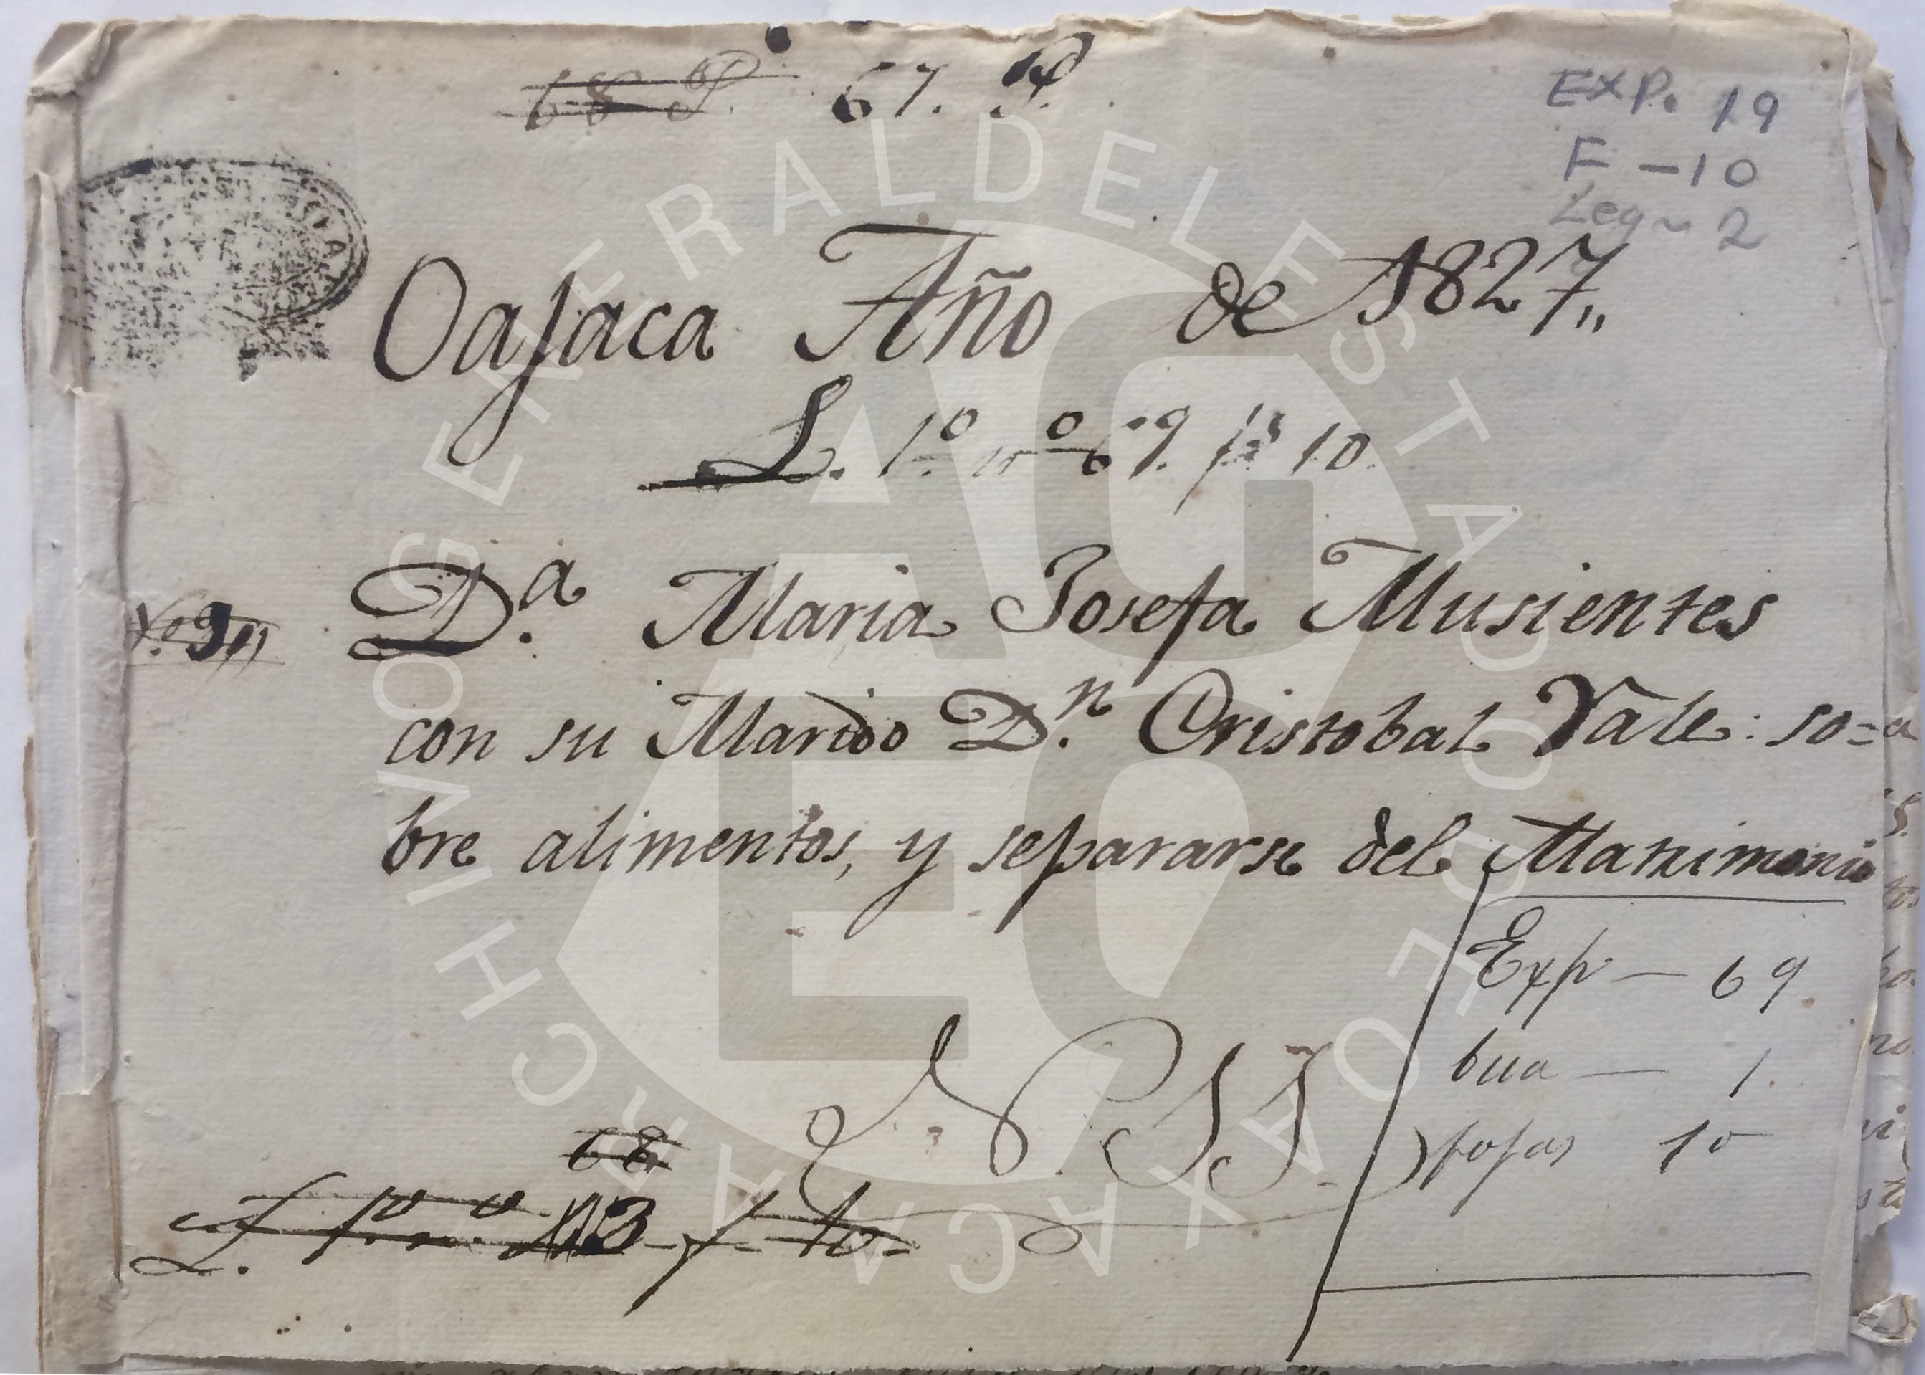 68 P. 67. P.
EXP. 19
F - 10
Leg - 2
Oajaca Año de 1827,,
L. 1º. nº 69. fs 10.
Dª. Maria Josefa Musientes
con su Marido Dⁿ. Cristobal Vale: so=
bre alimentos, y separarse del Matrimonio
Exp — 69.
1
fojas 10
68
ARCHIVO GENERAL DEL ESTADO DE OAXACA
AGEO